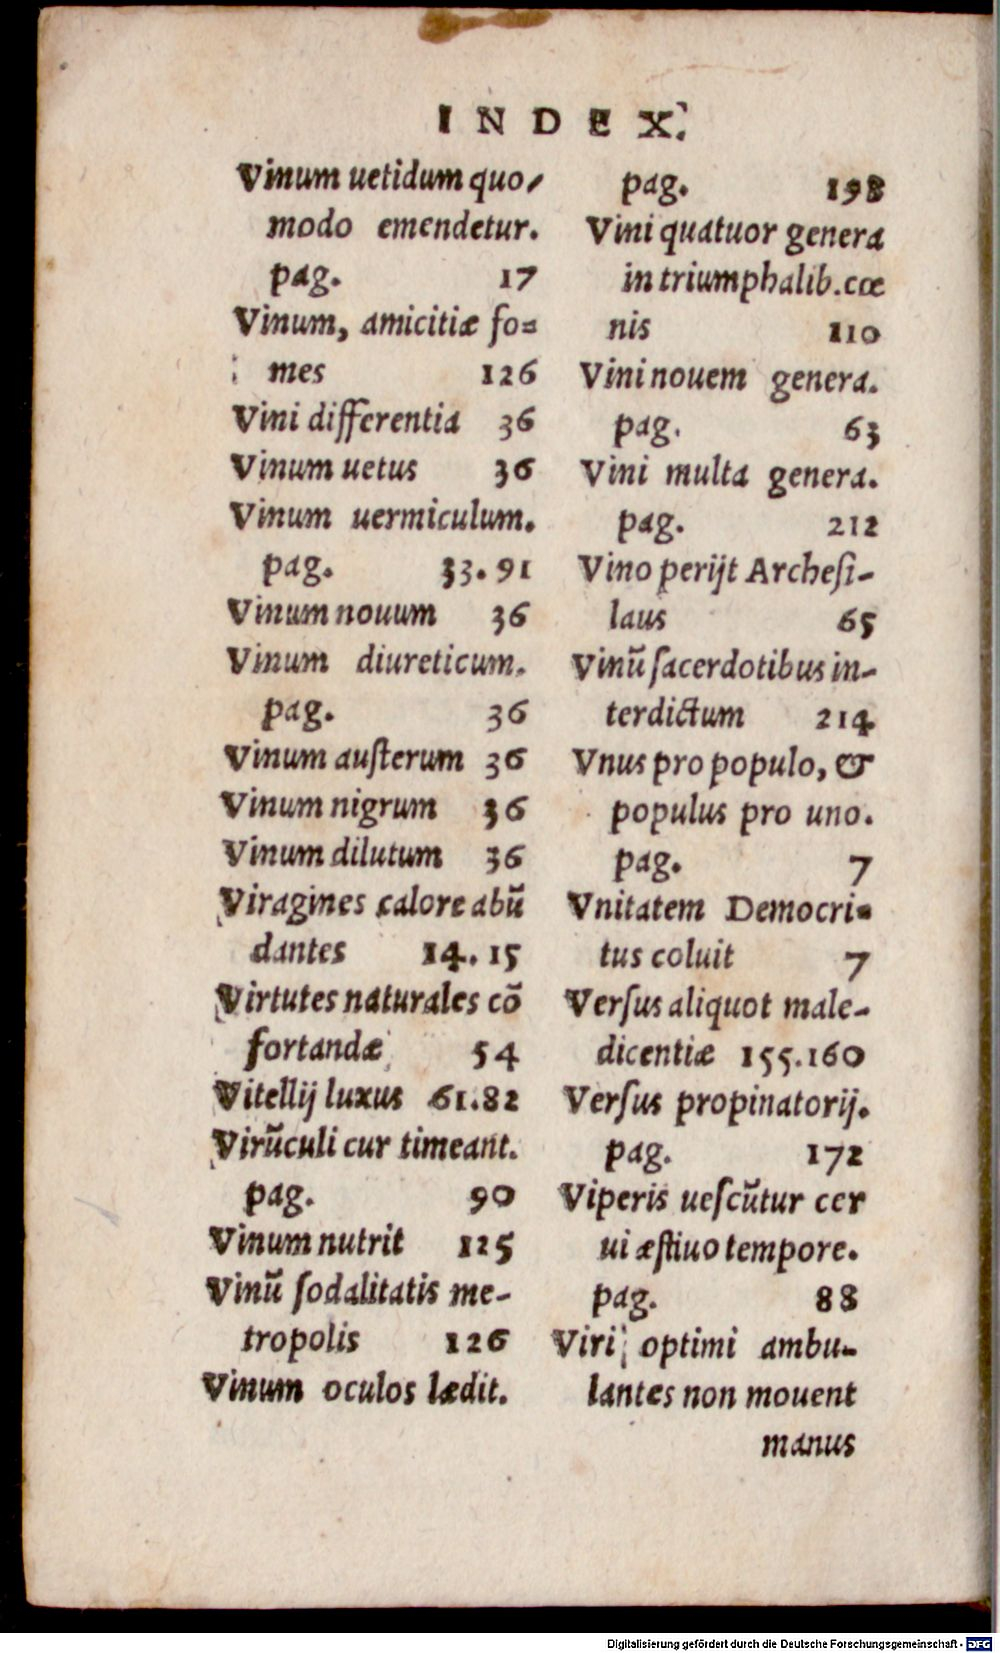 INDEX.
Vinum uetidum quo-
modo emendetur.
pag. 17
Vinum, amicitiæ fo-
mes 126
Vini differentia 36
Vinum uetus 36
Vinum uermiculum.
pag. 33.91
Vinum nouum 36
Vinum diureticum.
pag. 36
Vinum auſterum 36
Vinum nigrum 36
Vinum dilutum 36
Viragines calore abū
dantes 14.15
Virtutes naturales cō
fortandæ 54
Vitellij luxus 61.82
Virūculi cur timeant.
pag. 90
Vinum nutrit 125
Vinū ſodalitatis me-
tropolis 126
Vinum oculos lædit.
pag. 198
Vini quatuor genera
in triumphalib. cœ
nis 110
Vini nouem genera.
pag. 63
Vini multa genera.
pag. 212
Vino perijt Archeſi-
laus 65
Vinū ſacerdotibus in-
terdictum 214
Vnus pro populo, &
populus pro uno.
pag. 7
Vnitatem Democri-
tus coluit 7
Verſus aliquot male-
dicentiæ 155.160
Verſus propinatorij.
pag. 172
Viperis ueſcūtur cer
ui æſtiuo tempore.
pag. 88
Viri optimi ambu-
lantes non mouent
manus
Digitalisierung gefördert durch die Deutsche Forschungsgemeinschaft - DFG